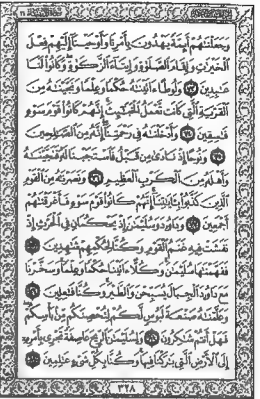 وَجَعَلْنَٰهُمْ أَئِمَّةً يَهْدُونَ بِأَمْرِنَا وَأَوْحَيْنَآ إِلَيْهِمْ فِعْلَ
ٱلْخَيْرَٰتِ وَإِقَامَ ٱلصَّلَوٰةِ وَإِيتَآءَ ٱلزَّكَوٰةِ وَكَانُوا۟ لَنَا
عَٰبِدِينَ ﴿٧٣﴾ وَلُوطًا ءَاتَيْنَٰهُ حُكْمًا وَعِلْمًا وَنَجَّيْنَٰهُ مِنَ
ٱلْقَرْيَةِ ٱلَّتِى كَانَت تَّعْمَلُ ٱلْخَبَٰٓئِثَ إِنَّهُمْ كَانُوا۟ قَوْمَ سَوْءٍ
فَٰسِقِينَ ﴿٧٤﴾ وَأَدْخَلْنَٰهُ فِى رَحْمَتِنَآ إِنَّهُۥ مِنَ ٱلصَّٰلِحِينَ
﴿٧٥﴾ وَنُوحًا إِذْ نَادَىٰ مِن قَبْلُ فَٱسْتَجَبْنَا لَهُۥ فَنَجَّيْنَٰهُ
وَأَهْلَهُۥ مِنَ ٱلْكَرْبِ ٱلْعَظِيمِ ﴿٧٦﴾ وَنَصَرْنَٰهُ مِنَ ٱلْقَوْمِ
ٱلَّذِينَ كَذَّبُوا۟ بِـَٔايَٰتِنَآ إِنَّهُمْ كَانُوا۟ قَوْمَ سَوْءٍ فَأَغْرَقْنَٰهُمْ
أَجْمَعِينَ ﴿٧٧﴾ وَدَاوُۥدَ وَسُلَيْمَٰنَ إِذْ يَحْكُمَانِ فِى ٱلْحَرْثِ إِذْ
نَفَشَتْ فِيهِ غَنَمُ ٱلْقَوْمِ وَكُنَّا لِحُكْمِهِمْ شَٰهِدِينَ ﴿٧٨﴾
فَفَهَّمْنَٰهَا سُلَيْمَٰنَ وَكُلًّا ءَاتَيْنَا حُكْمًا وَعِلْمًا وَسَخَّرْنَا
مَعَ دَاوُۥدَ ٱلْجِبَالَ يُسَبِّحْنَ وَٱلطَّيْرَ وَكُنَّا فَٰعِلِينَ ﴿٧٩﴾
وَعَلَّمْنَٰهُ صَنْعَةَ لَبُوسٍ لَّكُمْ لِتُحْصِنَكُم مِّنۢ بَأْسِكُمْ
فَهَلْ أَنتُمْ شَٰكِرُونَ ﴿٨٠﴾ وَلِسُلَيْمَٰنَ ٱلرِّيحَ عَاصِفَةً تَجْرِى بِأَمْرِهِۦٓ
إِلَى ٱلْأَرْضِ ٱلَّتِى بَٰرَكْنَا فِيهَا وَكُنَّا بِكُلِّ شَىْءٍ عَٰلِمِينَ ﴿٨١﴾
٣٢٨